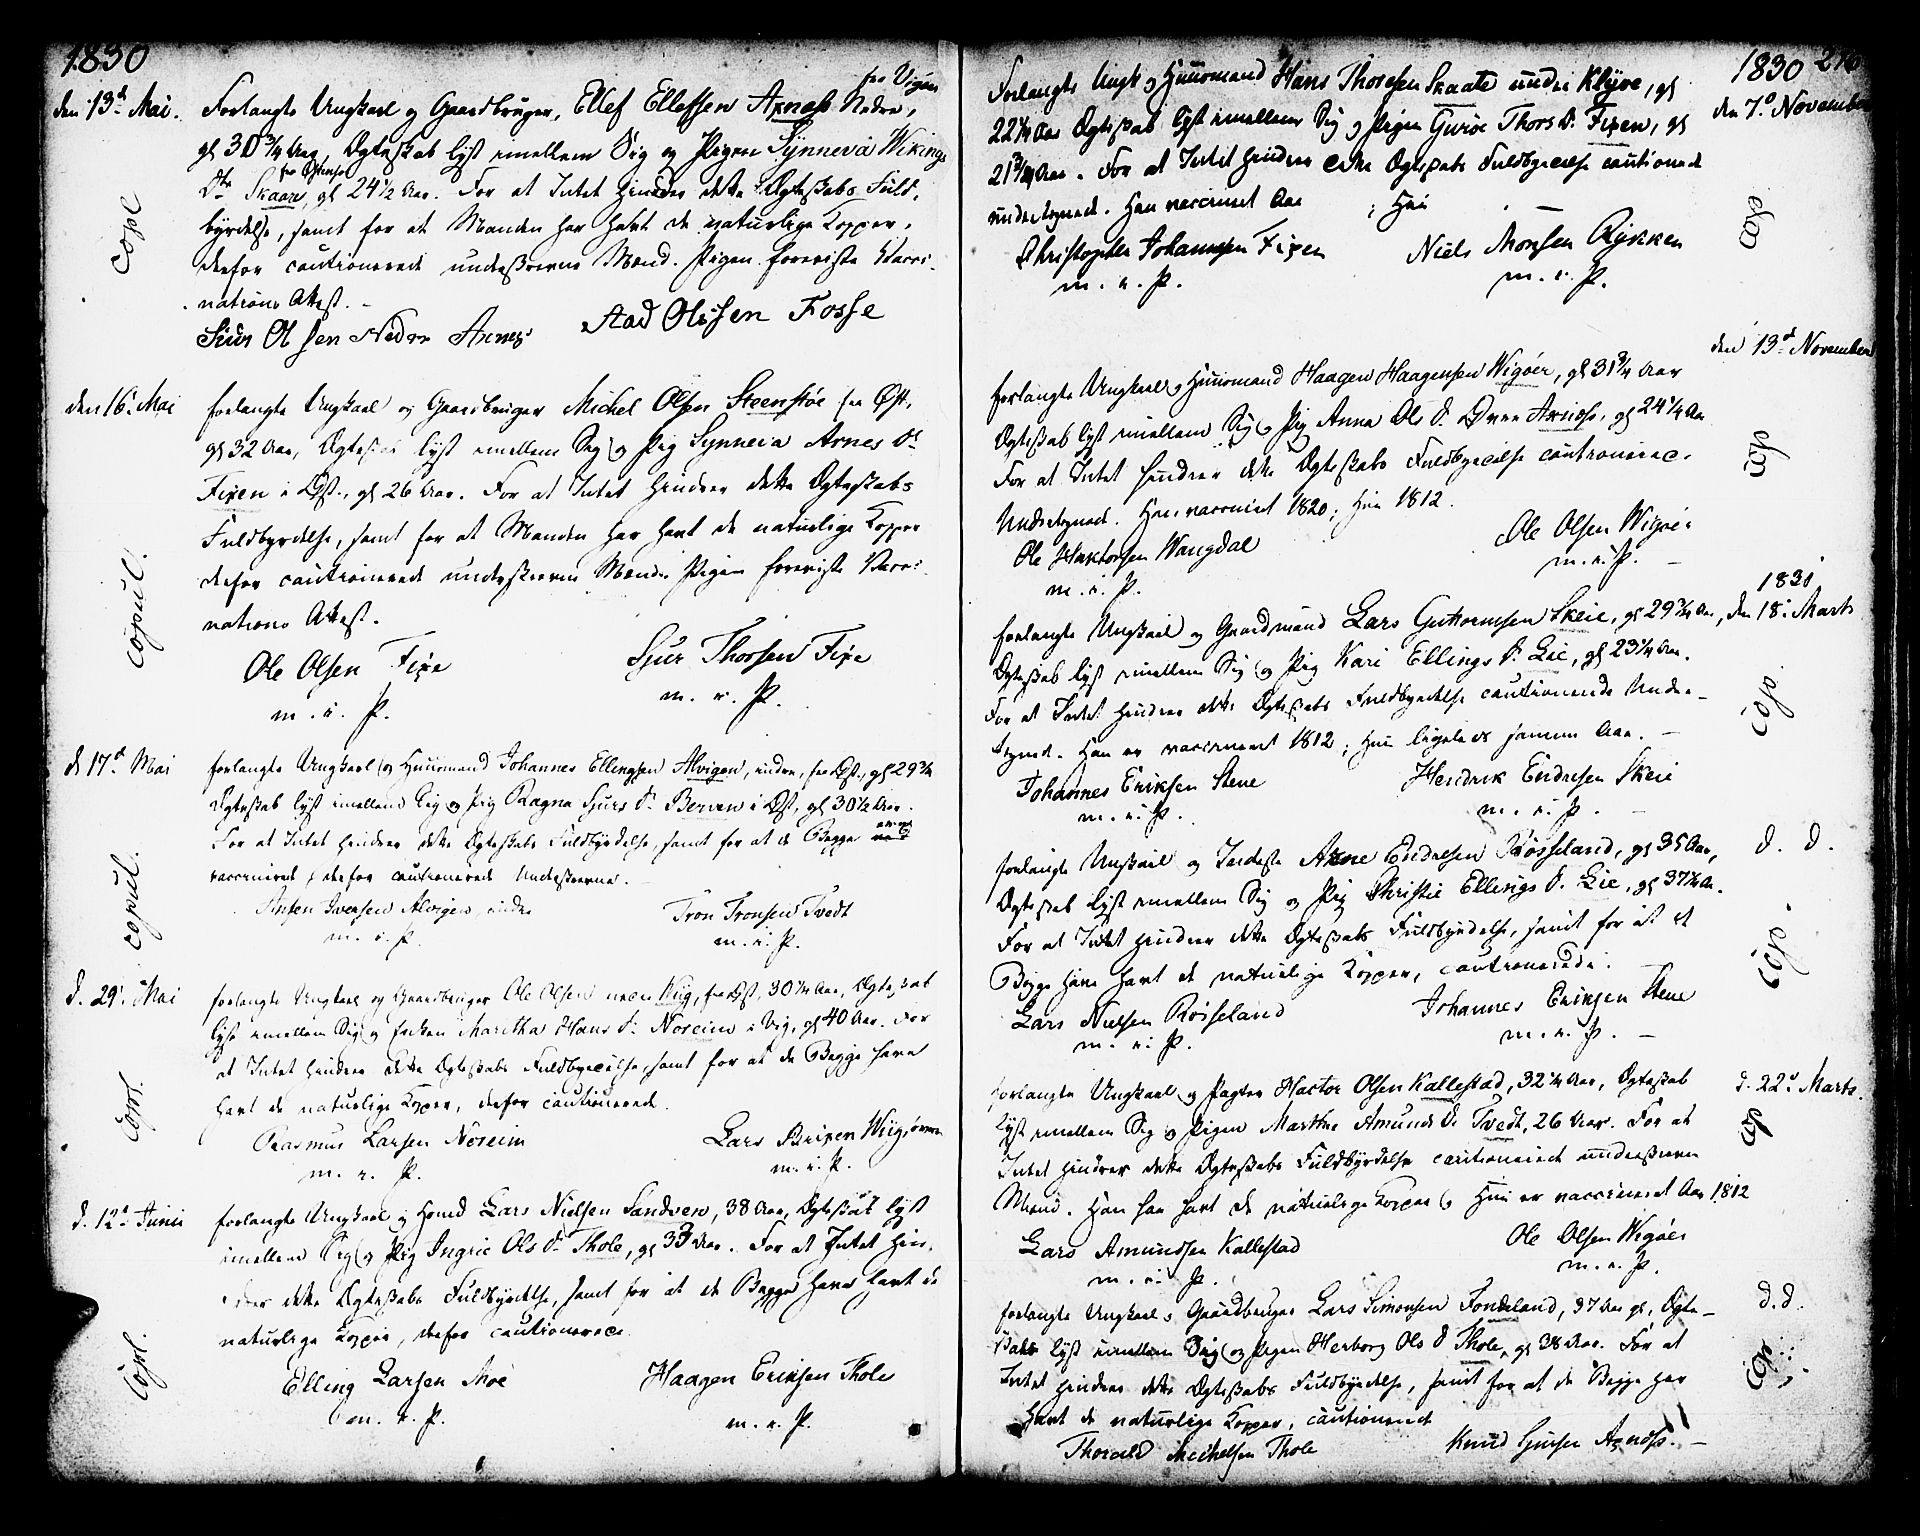 1830
den 13d Mai.
fra Vigen
Forlangte Ungkarl og Gaardbruger, Ellef Ellefsen Axnæs Nedre,
gl 30 3/4 Aar, Ægteskab lyst imellem Sig og Pigen Synneva Wikings
fra Østensø
Dtr Skaare, gl 24 1/2 Aar. For at Intet hindrer dette Ægteskabs Fuld-
byrdelse, samt for at Manden har havt de naturlige Kopper,
derfor cautionerede underskrevne Mænd. Pigen foreviste Vacci-
nations Attest. –
Siur Olsen Nedre Axnæs
Aad Olssen Fosse
copl
den 16. Mai
forlangte Ungkarl og Gaardbruger Michel Olsen Steenstøe fra Øst.
gl 32 Aar, Ægteskab lyst imellem Sig og Pig Synneva Arnes D.
Fixen i Øst., gl 26 Aar. For at Intet hindrer dette Ægteskabs
Fuldbyrdelse, samt for at Manden har havt de naturlige Kopper
derfor cautionerede underskrevne Mænd. Pigen foreviste Vacci-
nations Attest.
Ole Olsen Fixe
Sjur Thorsen Fixe
m. i. P.
m. i. P.
copul.
d 17d Mai
forlangte Ungkarl og Huusmand Johannes Ellingsen Alvigen, indre, fra Øst., gl 29 3/4
Ægteskab lyst imellem Sig og Pig Ragna Sjurs D. Berven i Øst, gl 30 1/2 Aar.
For at Intet hindrer dette Ægteskabs Fuldbyrdelse, samt for at de Begge
vaccinerede, derfor cautionerede Underskrevne. –
Ansen Iversen Alvigen, indre
Tron Tronsen Tvedt
m. i. P.
m. i. P.
copul.
d. 29. Mai
forlangte Ungkarl og Gaardbruger Ole Olsen, fra Øst, 30 1/4 Aar, Ægteskab
lyst imellem Sig og Enken Maritha Hans D. Noreim i Vig, gl 40 Aar. For
at Intet hindrer dette Ægteskabs Fuldbyrdelse, samt for at de Begge have
havt de naturlige Kopper, derfor cautionerede.
Rasmus Larsen Noreim
Lars
m. i. P.
m. i. P.
copl.
d. 12d Junii
forlangte Ungkarl og Hmd Lars Nielsen Sandven, 38 Aar, Ægteskab lyst
imellem Sig og Pig Ingrie Ols D. Thole, gl 33 Aar. For at Intet hin-
drer dette Ægteskabs Fuldbyrdelse, samt for at de Begge have havt de
naturlige Kopper, derfor cautionerede.
Elling Larsen Moe
Haagen Eriksen Thole
m. i. P.
m. i. P.
copl.
1830
den 7d November
Forlangte Ungk og Huusmand Hans Thorsen Skaate under Klyve, gl
22 1/4 Aar Ægteskab lyst imellem Sig og Pigen Guroe Thors D. Fixen, gl
21 3/4 Aar. For at Intet hindrer dette Ægteskabs Fuldbyrdelse cautionerede
undertegnede. Han vaccineret Aar ; Hun
Christopher Johannesen Fixen
Niels Monsen Rykken
m. i. P.
m. i. P.
cop
den 13d November
forlangte Ungkarl og Huusmand Haagen Haagensen Wigøer, gl 31 3/4 Aar
Ægteskab lyst imellem Sig og Pig Anna Ols D. Øvre Axnæs, gl 24 1/4 Aar
For at Intet hindrer dette Ægteskabs Fuldbyrdelse cautionerede
Undertegnede. Han vaccineret 1820; Hun 1812.
Ole Olsen Wigøer
Ole Haktorsen Wangdal
m. i. P.
m. i. P.
cop
1831
den 18. Marts
forlangte Ungkarl og Gaardmand Lars Guttormsen Skeie, gl 29 3/4 Aar,
Ægteskab lyst imellem Sig og Pig Kari Ellings D. Lie, gl 23 1/4 Aar.
For at Intet hindrer dette Ægteskabs Fuldbyrdelse cautionerede Under-
tegnede. Han er vaccineret 1812; Hun ligeledes samme Aar. –
Johannes Eriksen Stene
Hendrik Endresen Skeie
m. i. P.
m. i. P.
cop
d. d.
forlangte Ungkarl og Inderste Arne Endresen Røsseland, gl 35 Aar,
Ægteskab lyst imellem Sig og Pig Christie Ellings D. Lie, gl 37 1/2 Aar.
For at Intet hindrer dette Ægteskabs Fuldbyrdelse, samt for at de
Begge have havt de naturlige Kopper, cautionerede.
Lars Nielsen Røiseland
Johannes Eriksen Stene
m. i. P.
m. i. P.
cop.
d. 22d Marts.
forlangte Ungkarl og Pagter Hactor Olsen Kallestad, 32 1/4 Aar, Ægteskab
lyst imellem Sig og Pigen Marthe Amunds D. Tvedt, 26 Aar. For at
Intet hindrer dette Ægteskabs Fuldbyrdelse cautionerede underskrevne
Mænd. Han har havt de naturlige Kopper og Hun er vaccineret Aar 1812
Lars Amundsen Kallestad
Ole Olsen Wigøer
m. i. P.
m. i. P.
cop
d. d.
forlangte Ungkarl og Gaardbruger Lars Simonsen Tondeland, 37 Aar gl, Ægte-
skab lyst imellem Sig og Pigen Herborg Ols D Thole, gl 38 Aar. For at
Intet hindrer dette Ægteskabs Fuldbyrdelse, samt for at de Begge har
havt de naturlige Kopper, cautionerede
Thorald Michelsen Thole
Knud Sjursen Axnæs. –
cop